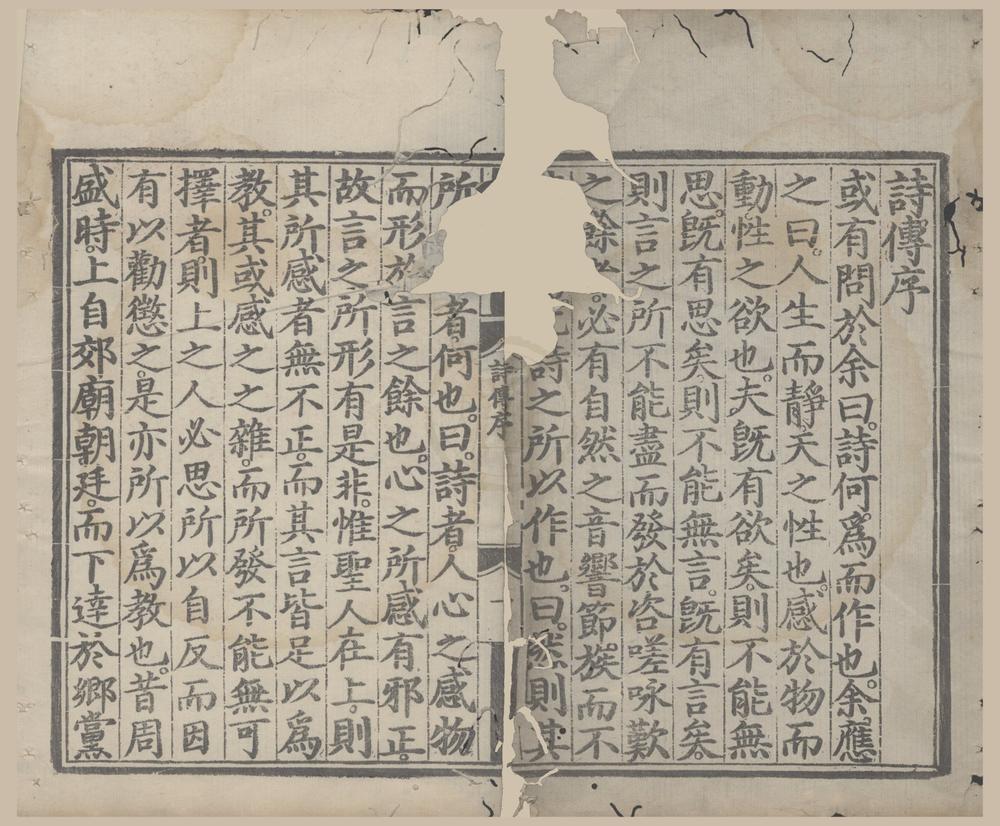 詩傳序
或有問於余曰。詩何爲而作也。余應
之曰。人生而靜。天之性也。感於物而
動。性之欲也。夫旣有欲矣。則不能無
思。旣有思矣。則不能無言。旣有言矣。
則言之所不能盡而發於咨嗟咏歎
之餘。必有自然之音響節族而不
詩之所以作也。曰。然則其
詩傳序 一
所者。何也。曰。詩者。人心之感物
而形於言之餘也。心之所感有邪正。
故言之所形有是非。惟聖人在上。則
其所感者無不正。而其言皆足以爲
教。其或感之之雜。而所發不能無可
擇者。則上之人必思所以自反而因
有以勸懲之。是亦所以爲教也。昔周
盛時。上自郊廟朝廷。而下達於鄕黨